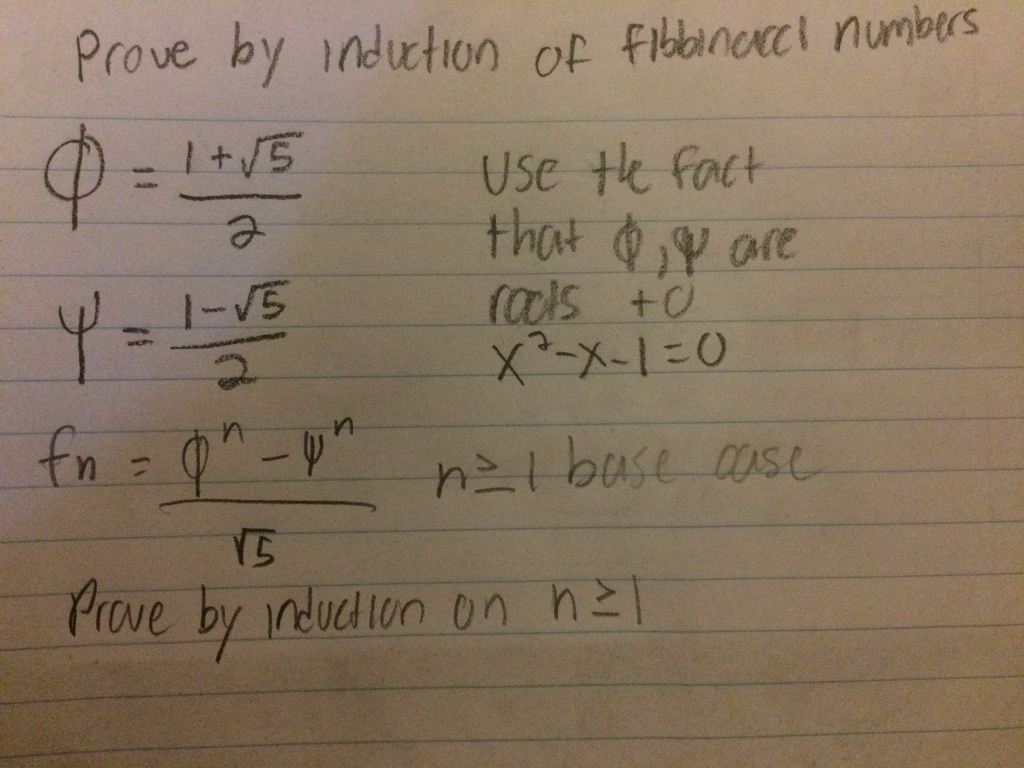 Prove by induction of fibbinacci numbers
φ = (1+√5)/2
Use the fact
that φ, ψ are
roots to
ψ = (1-√5)/2
x²-x-1=0
fn = (φⁿ - ψⁿ)/√5 n≥1 base case
Prove by induction on n≥1